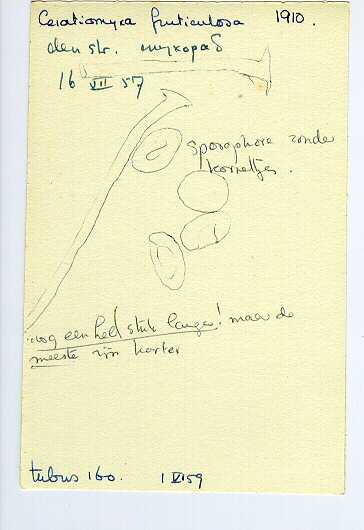 Ceratiomyxa fruticulosa 1910.
den str.
16 VII 57
sporophore zonder
korreltjes.
nog een heel stuk langer! maar de
meeste zijn korter
tubus 160. 1 VI 59